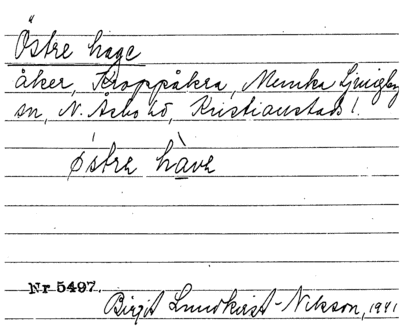 Östre hage
åker, Kroppåkra, Munka Ljungby
sn, N. Åsbo hd, Kristianstads l.
østre hàve
Nr 5497.
Birgit Lundkvist-Nilsson, 1941